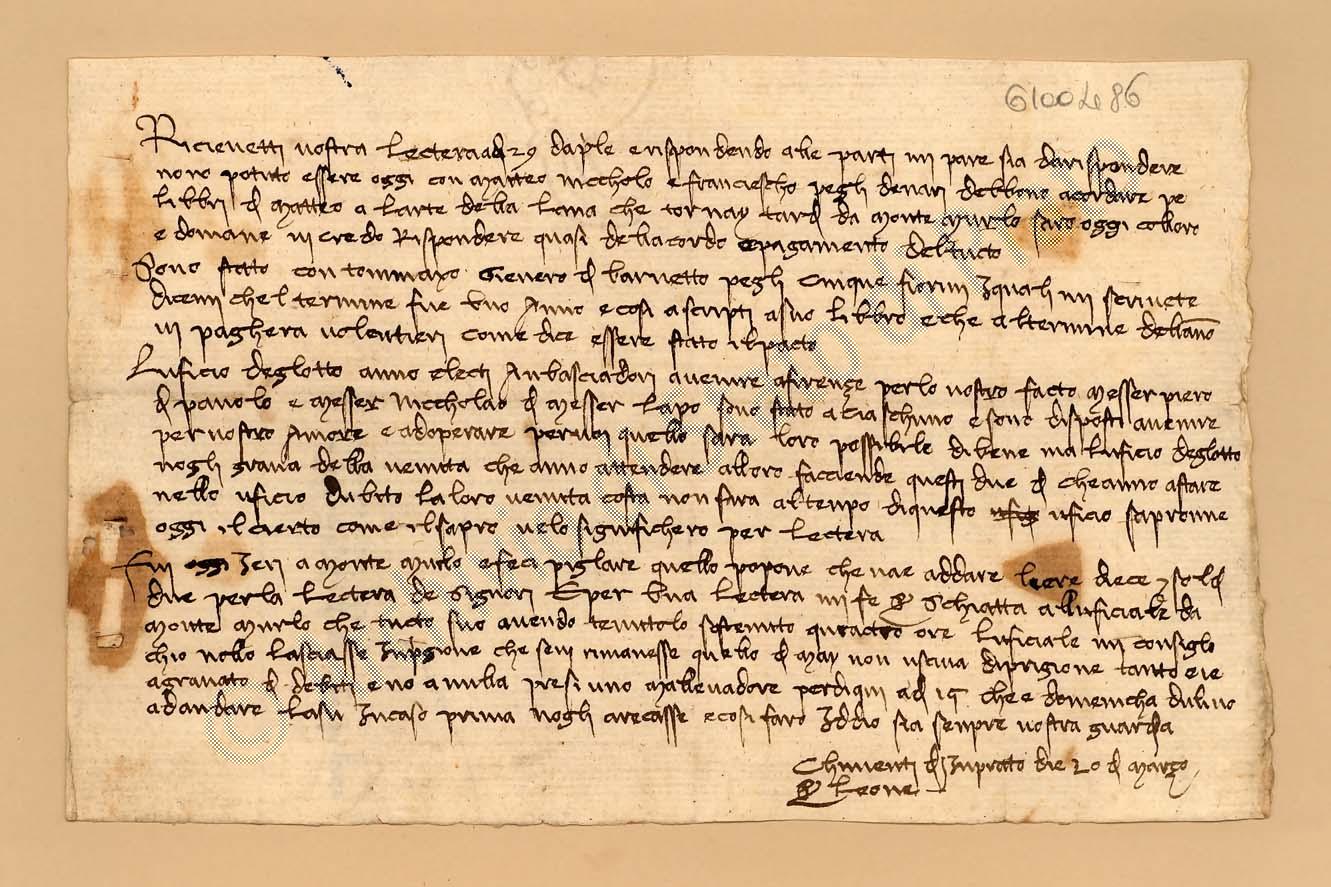 6100486
Ricievetti vostra lectera adi 29 da pile e rispondendo alle parti mi pare sia da rispondere
nono potuto essere oggi con Matteo niccholo e franciescho pegli denari debbono acordare pe
libbri di Matteo a larte della lana che tornay tardi da Monte Murlo saro oggi colloro
e domane vi credo Rispondere quasi dellacordo e pagamento del tucto
Sono stato con tommaxo Gienero di barnetto pegli Cinque fiorini Iquali mi scrivete
dicemi chel termine fue Uno Anno e cosi a scripti a suo libbro e che al termine debbano
vi paghera volentieri come dice essere stato il pacto
Luficio deglotto anno electi Anbasciadori a venire a firençe per lo vostro facto Messer piero
di pavolo e Messer Niccholao di Messer Lapo sono stato a ciaschuno e sono disposti a venire
per vostro Amore e adoperare per voi quello sara loro possibile di bene ma luficio deglotto
nogli grava della venuta che anno attendere alloro facciende questi due di che anno a stare
nello uficio dubito la loro venuta costa non sara al tenpo di questo uficio sapronne
oggi il cierto come il sapro velo significhero per lectera
Fui oggi Ieri a Monte Murlo e feci pigliare quello popone che vae a ddare liere diece soldi
due per la lectera de Signori E per Una lectera mi fe Schiatta alluficiale da
Monte Murlo che tucto suo avendo tenutolo sostenuto quactro ore luficiale mi consiglo
chio nollo lasciasse Inpgione che sevi rimanesse quello di may non usciva di prigione tanto eie
agravato di debiti e no a nulla presi uno Mallevadore per di qui adi 15 che e domenicha dulivo
ad andare lasu Incaso prima nogli arecasse e cosi faro Iddio sia senpre vostra guardia
Chimenti di Inprato die 20 di Março
Leone